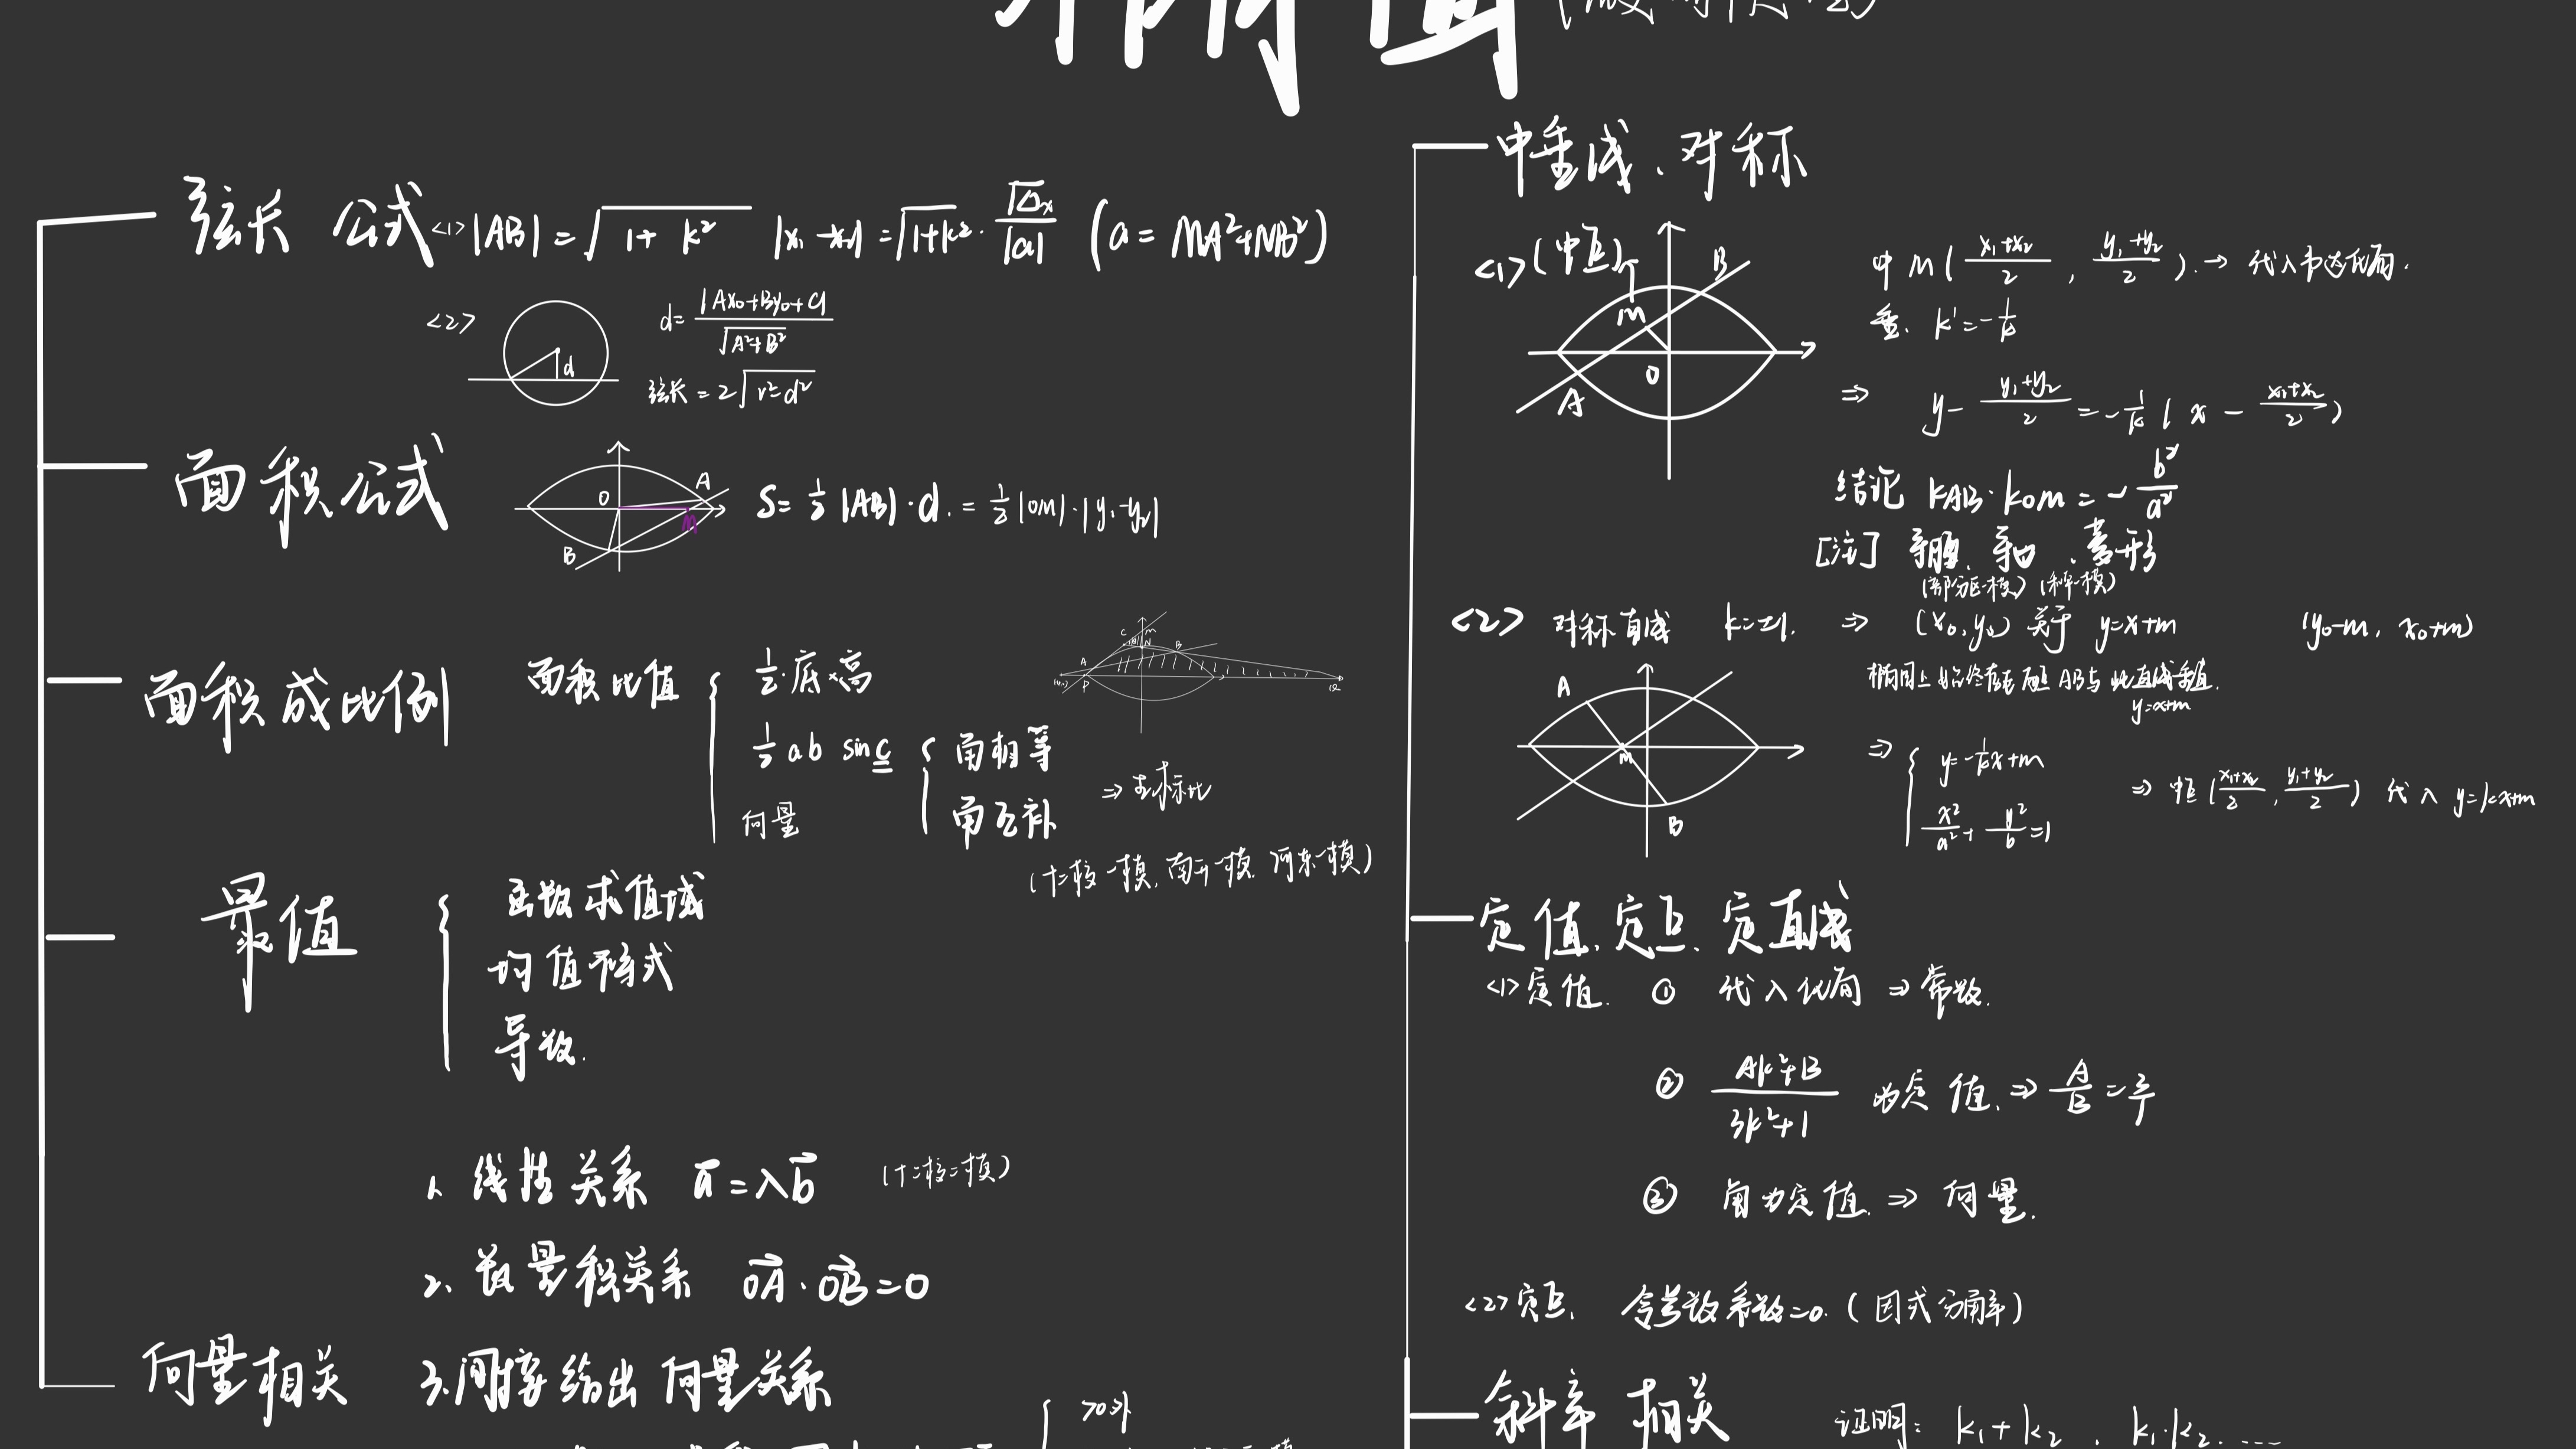 弦长公式 <1> |AB| = √(1+k²) |x₁-x₂| = √(1+k²)·√Δx/|a| (a = MA²+NB²)
<2> d
d = |Ax₀+By₀+C|/√(A²+B²)
弦长 = 2√(r²-d²)
面积公式
O A M B
S = ½|AB|·d. = ½|OM|·|y₁-y₂|
面积成比例 面积比值
½·底×高
½ab sinc
向量
角相等
角互补
⇒ 坐标比
C M N A B P Q
(十二校一模, 南开一模, 河东一模)
最值
函数求值域
均值不等式
导数.
向量相关
1、线性关系 a = λb (十二校二模)
2、数量积关系 OA·OB=0
3、间接给出向量关系
>0 外
中垂线、对称
<1> (中点)
B M O A
中 M((x₁+x₂)/2, (y₁+y₂)/2). → 代入韦达化简.
垂. k'=-1/k
⇒ y - (y₁+y₂)/2 = -1/k (x - (x₁+x₂)/2)
结论 kAB·kOM = -b²/a²
[注] 等腰、等边、菱形
(部分区一模) (和平一模)
<2> 对称直线 k=±1. ⇒ (x₀,y₀) 关于 y=x+m (y₀-m, x₀+m)
椭圆上始终存在两点AB与此直线垂直.
y=x+m
A M B
⇒ y=-1/k x+m
x²/a² + y²/b = 1
⇒ 中点((x₁+x₂)/2, (y₁+y₂)/2) 代入 y=kx+m
定值、定点、定直线
<1> 定值. ① 代入化简 ⇒ 常数.
② (Ak²+B)/(3k²+1) 为定值. ⇒ A/B = 3/1
③ 角为定值. ⇒ 向量.
<2> 定点、令参数系数=0. (因式分解)
斜率相关 证明: k₁+k₂、k₁·k₂. ....